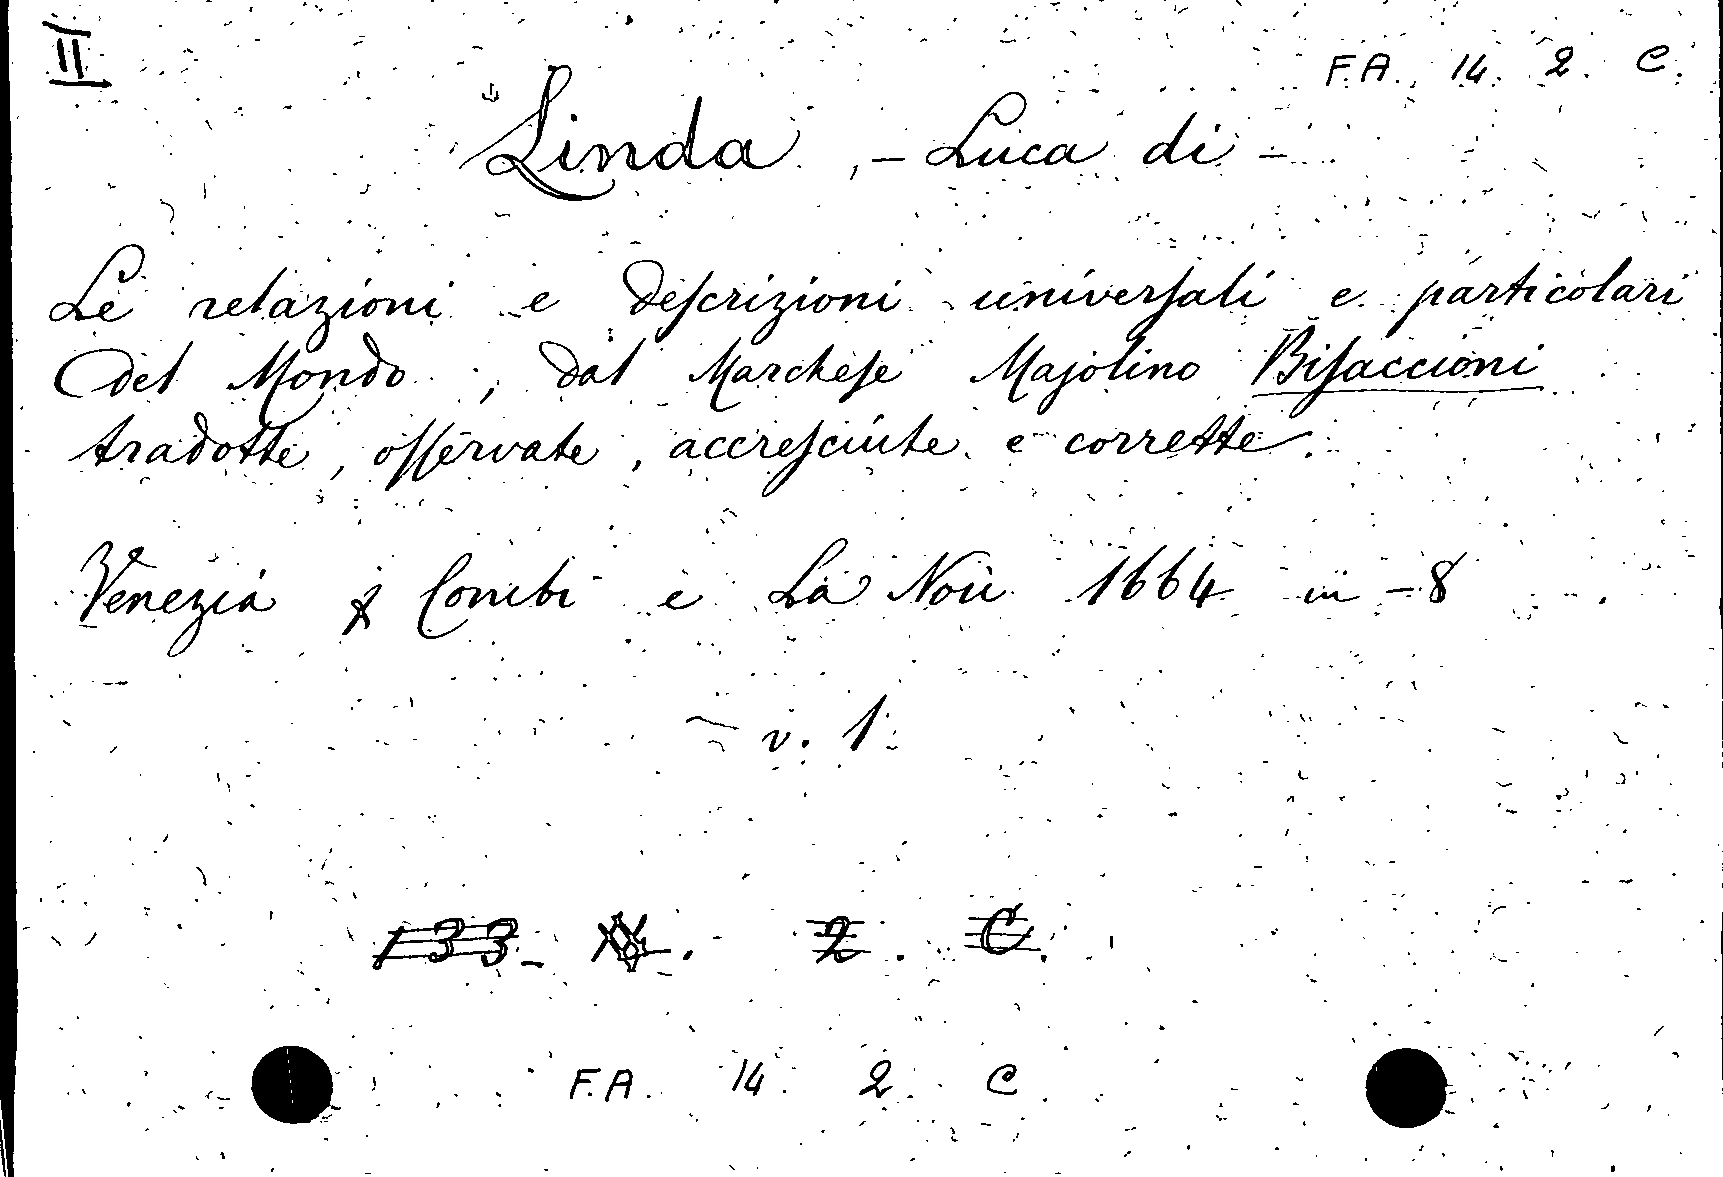 II
F.A. 14. 2. C.
Linda, - Luca di -
Le relazioni e descrizioni universali e particolari
del Mondo, dal Marchese Majolino Bisaccioni
tradotte, osservate, accresciute e corrette.
Venezia Combi e La Noù 1664 in-8
v. 1
133 2. C.
F.A. 14 2 C